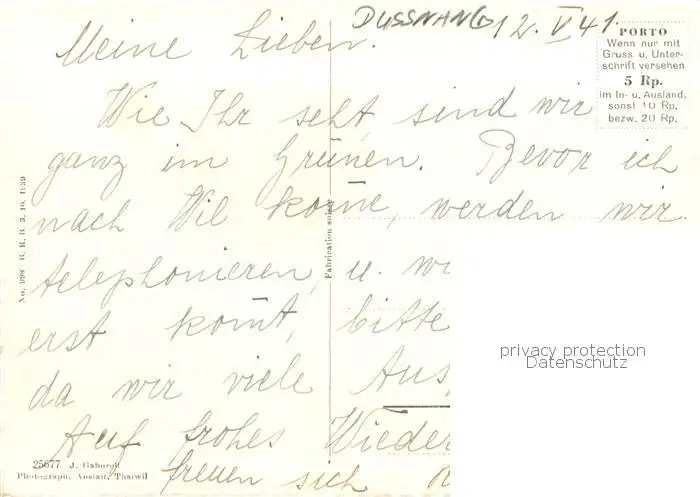 DUSSNANG 12. V 41.
PORTO
Wenn nur mit
Gruss u. Unter-
schrift versehen
5 Rp.
im In- u. Ausland,
sonst 10 Rp.
bezw. 20 Rp.
Meine Lieben.
Wie Ihr seht sind wir
ganz im Grünen. Bevor ich
nach Wil kom̄e, werden wir
telephonieren, u. we
erst kom̄t, bitte
da wir viele Aus
Auf frohes Wieder
freuen sich
No. 998 B. R. B. 3. 10. 1939
Fabrication suisse
25677 J. Gaberell
Photograph. Anstalt, Thalwil
privacy protection
Datenschutz